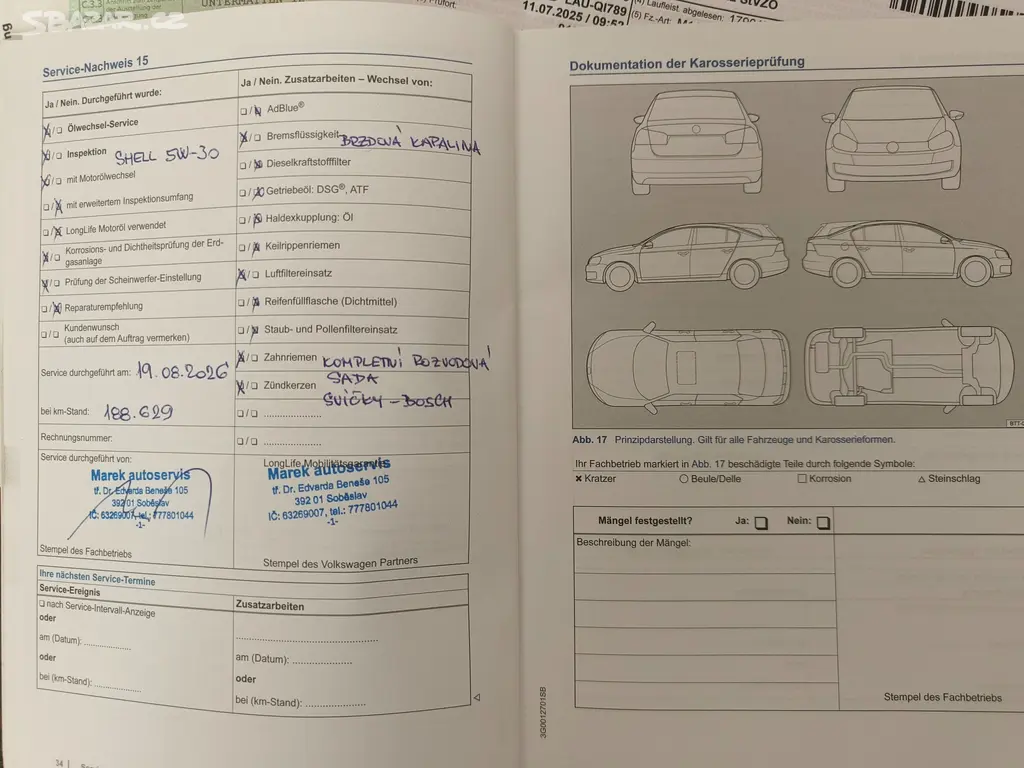 SBAZAR.CZ
C.3.3
UNTERMATTEN
LAU-QI789
11.07.2025 / 09:52
Laufleist. abgelesen:
(5) Fz.-Art:
StVZO
Service-Nachweis 15
Ja / Nein. Durchgeführt wurde:
Ölwechsel-Service
Inspektion SHELL 5W-30
mit Motorölwechsel
mit erweitertem Inspektionsumfang
LongLife Motoröl verwendet
Korrosions- und Dichtheitsprüfung der Erd-
gasanlage
Prüfung der Scheinwerfer-Einstellung
Reparaturempfehlung
Kundenwunsch
(auch auf dem Auftrag vermerken)
Service durchgeführt am: 19.08.2026
bei km-Stand: 188.629
Rechnungsnummer:
Service durchgeführt von:
Marek autoservis
tř. Dr. Edvarda Beneše 105
392 01 Soběslav
IČ: 63269007, tel.: 777801044
-1-
Stempel des Fachbetriebs
Ja / Nein. Zusatzarbeiten – Wechsel von:
AdBlue®
Bremsflüssigkeit BRZDOVÁ KAPALINA
Dieselkraftstofffilter
Getriebeöl: DSG®, ATF
Haldexkupplung: Öl
Keilrippenriemen
Luftfiltereinsatz
Reifenfüllflasche (Dichtmittel)
Staub- und Pollenfiltereinsatz
Zahnriemen KOMPLETNÍ ROZVODOVÁ
SADA
Zündkerzen
SVÍČKY - BOSCH
LongLife Mobilitätsgarantie
Marek autoservis
tř. Dr. Edvarda Beneše 105
392 01 Soběslav
IČ: 63269007, tel.: 777801044
-1-
Stempel des Volkswagen Partners
Ihre nächsten Service-Termine
Service-Ereignis
nach Service-Intervall-Anzeige
oder
am (Datum): ..................
oder
bei (km-Stand): ..................
Zusatzarbeiten
..................
am (Datum): ..................
oder
bei (km-Stand): ..................
34
Dokumentation der Karosserieprüfung
Abb. 17 Prinzipdarstellung. Gilt für alle Fahrzeuge und Karosserieformen.
Ihr Fachbetrieb markiert in Abb. 17 beschädigte Teile durch folgende Symbole:
Kratzer Beule/Delle Korrosion Steinschlag
Mängel festgestellt? Ja: Nein:
Beschreibung der Mängel:
Stempel des Fachbetriebs
3G0012701SB